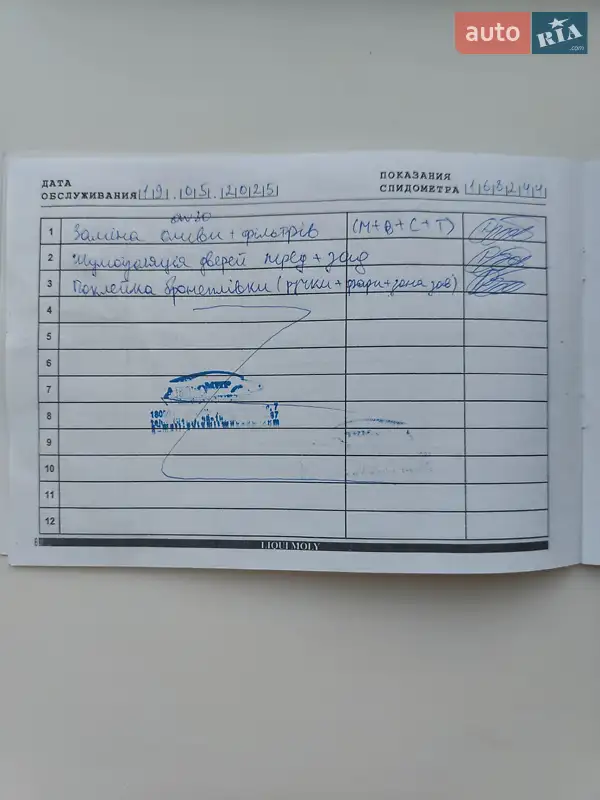 auto RIA .com
ДАТА
ОБСЛУЖИВАНИЯ 19.05.2025
ПОКАЗАНИЯ
СПИДОМЕТРА 168244
1 Заміна оливи + фільтрів (М+В+С+Т)
2 Шумоізоляція дверей перед + зад
3 Поклейка бронеплівки (ручки + фари + зона зав)
4
5
6
7
8
9
10
11
12
LIQUI MOLY